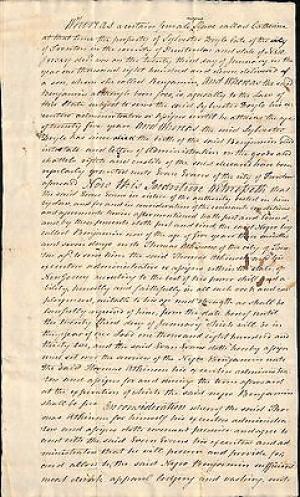 Whereas a certain female Slave called
at that time the property of Sylvester Doyle late of the city
of Trenton in the county of Hunterdon and state of New
Jersey did on the twenty third day of January in the
year one thousand eight hundred and seven, delivered of
a son, and who she called Benjamin, And Whereas the said
Benjamin although born free, is, agreeably to the Laws of
this State subject to serve the said Sylvester Doyle his ex
ecutor administrator or Assigns until he attains the age
of twenty five years And Whereas the said Sylvester
Doyle has since the birth of the said Benjamin died
intestate and letters of Administration on the goods and
chattels rights and credits of the said deceased have been
regularly granted unto Evan Evans of the city of Trenton
aforesaid Now this Indenture Witnesseth that
the said Evan Evans in virtue of the authority vested in him
by law, and for and in consideration of the covenants conditions
and agreements herein aftermentioned hath put and bound,
and by these presents doth put and bind the said Negro boy
called Benjamin now of the age of four years
and seven days unto Thomas Atkinson of the city of Tren
ton to him the said Thomas Atkinson his
executors administrators or assigns within the State of
New Jersey according to the best of his power skill and a
bility, honestly and faithfully in all such work and em
ployment, suitable to his age and strength as shall be
lawfully required of him, from the date hereof until
the twenty third day of January which will be in
the year of our Lord one thousand eight hundred and
thirty two, and the said Evan Evans doth hereby assign
and set over the services of the Negro Benjamin unto
the said Thomas Atkinson his executors administra
tors and assigns for and during the term aforesaid
at the expiration of which the said negro Benjamin
shall be free
In consideration whereof the said Tho
mas Atkinson for himself his executors administra
tors and assigns doth covenant promise and agree to
and with the said Evan Evans his executors and ad
ministrators that he will procure and provide for
and allow to the said Negro Benjamin sufficient
meat drink apparel lodging and washing, suit